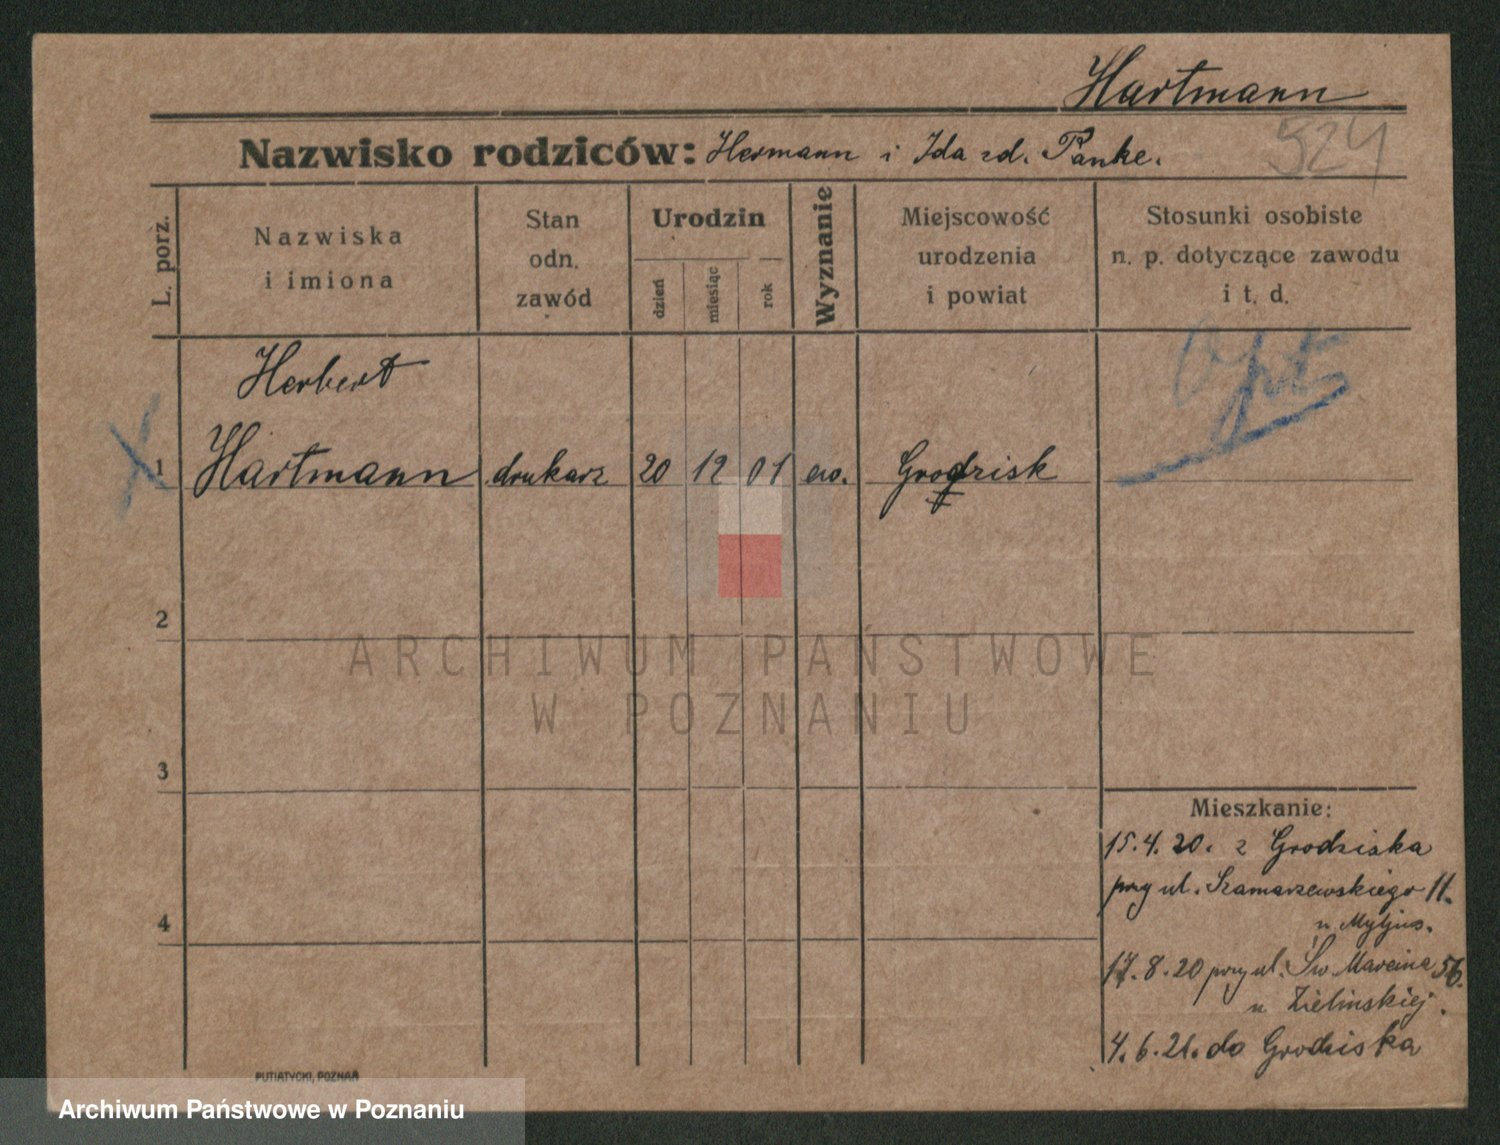 Hartmann
Nazwisko rodziców: Hermann i Ida zd. Panke.
524
L. porz.
Nazwiska
i imiona
Stan
odn.
zawód
Urodzin
dzień
miesiąc
rok
Wyznanie
Miejscowość
urodzenia
i powiat
Stosunki osobiste
n. p. dotyczące zawodu
i t. d.
Opt
Herbert
1 Hartmann drukarz 20 12 01 ew. Grodzisk
2
ARCHIWUM PAŃSTWOWE
W POZNANIU
3
4
Mieszkanie:
15.4.20. z Grodziska
przy ul. Szamarzewskiego 11.
u Myljus.
17.8.20 przy ul. Św. Marcina 56.
u Zielinskiej.
4.6.21. do Grodziska
PUTIATYCKI, POZNAŃ
Archiwum Państwowe w Poznaniu